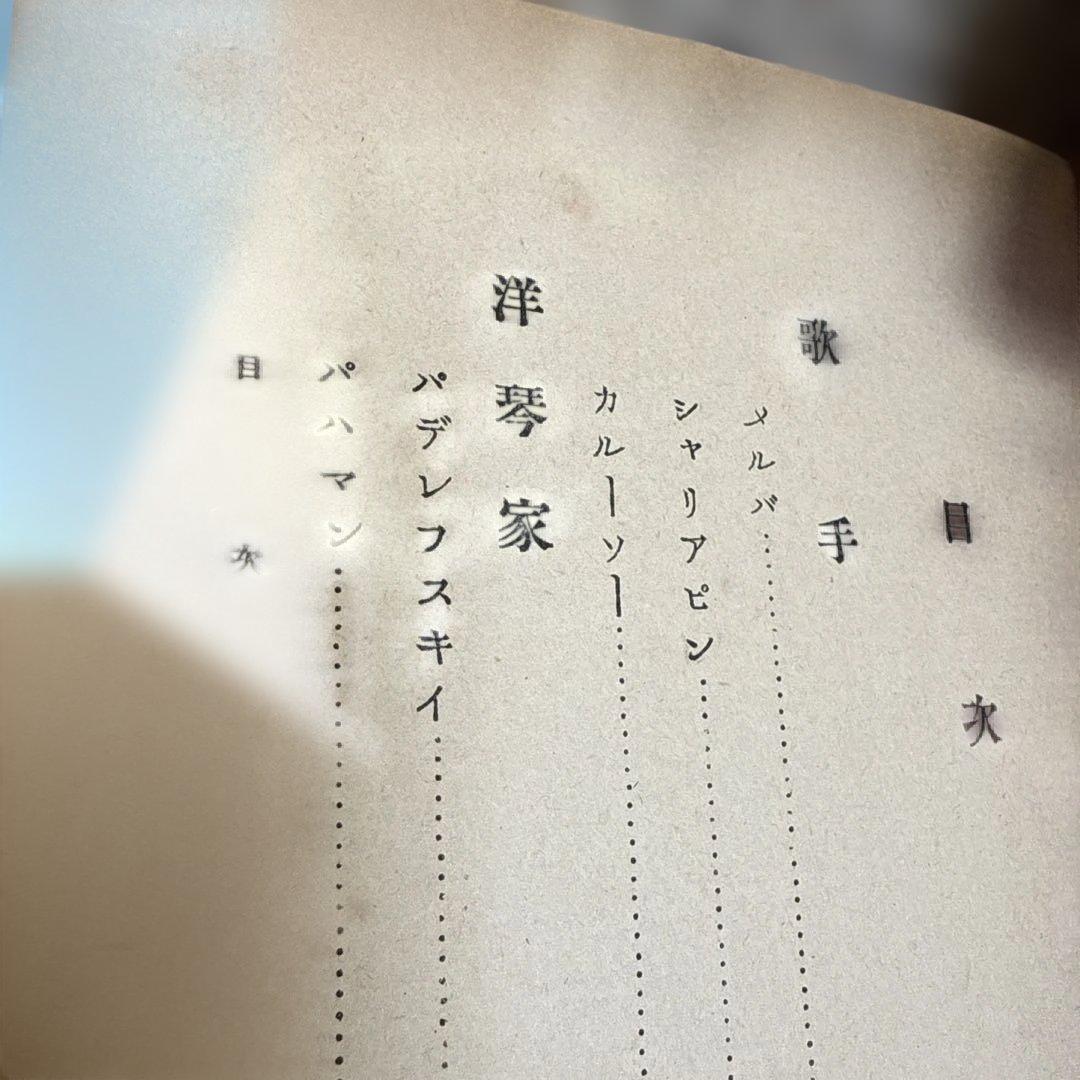 目次
歌手
メルバ……………
シャリアピン……………
カルーソー……………
洋琴家
パデレフスキイ……………
パハマン……………
目次